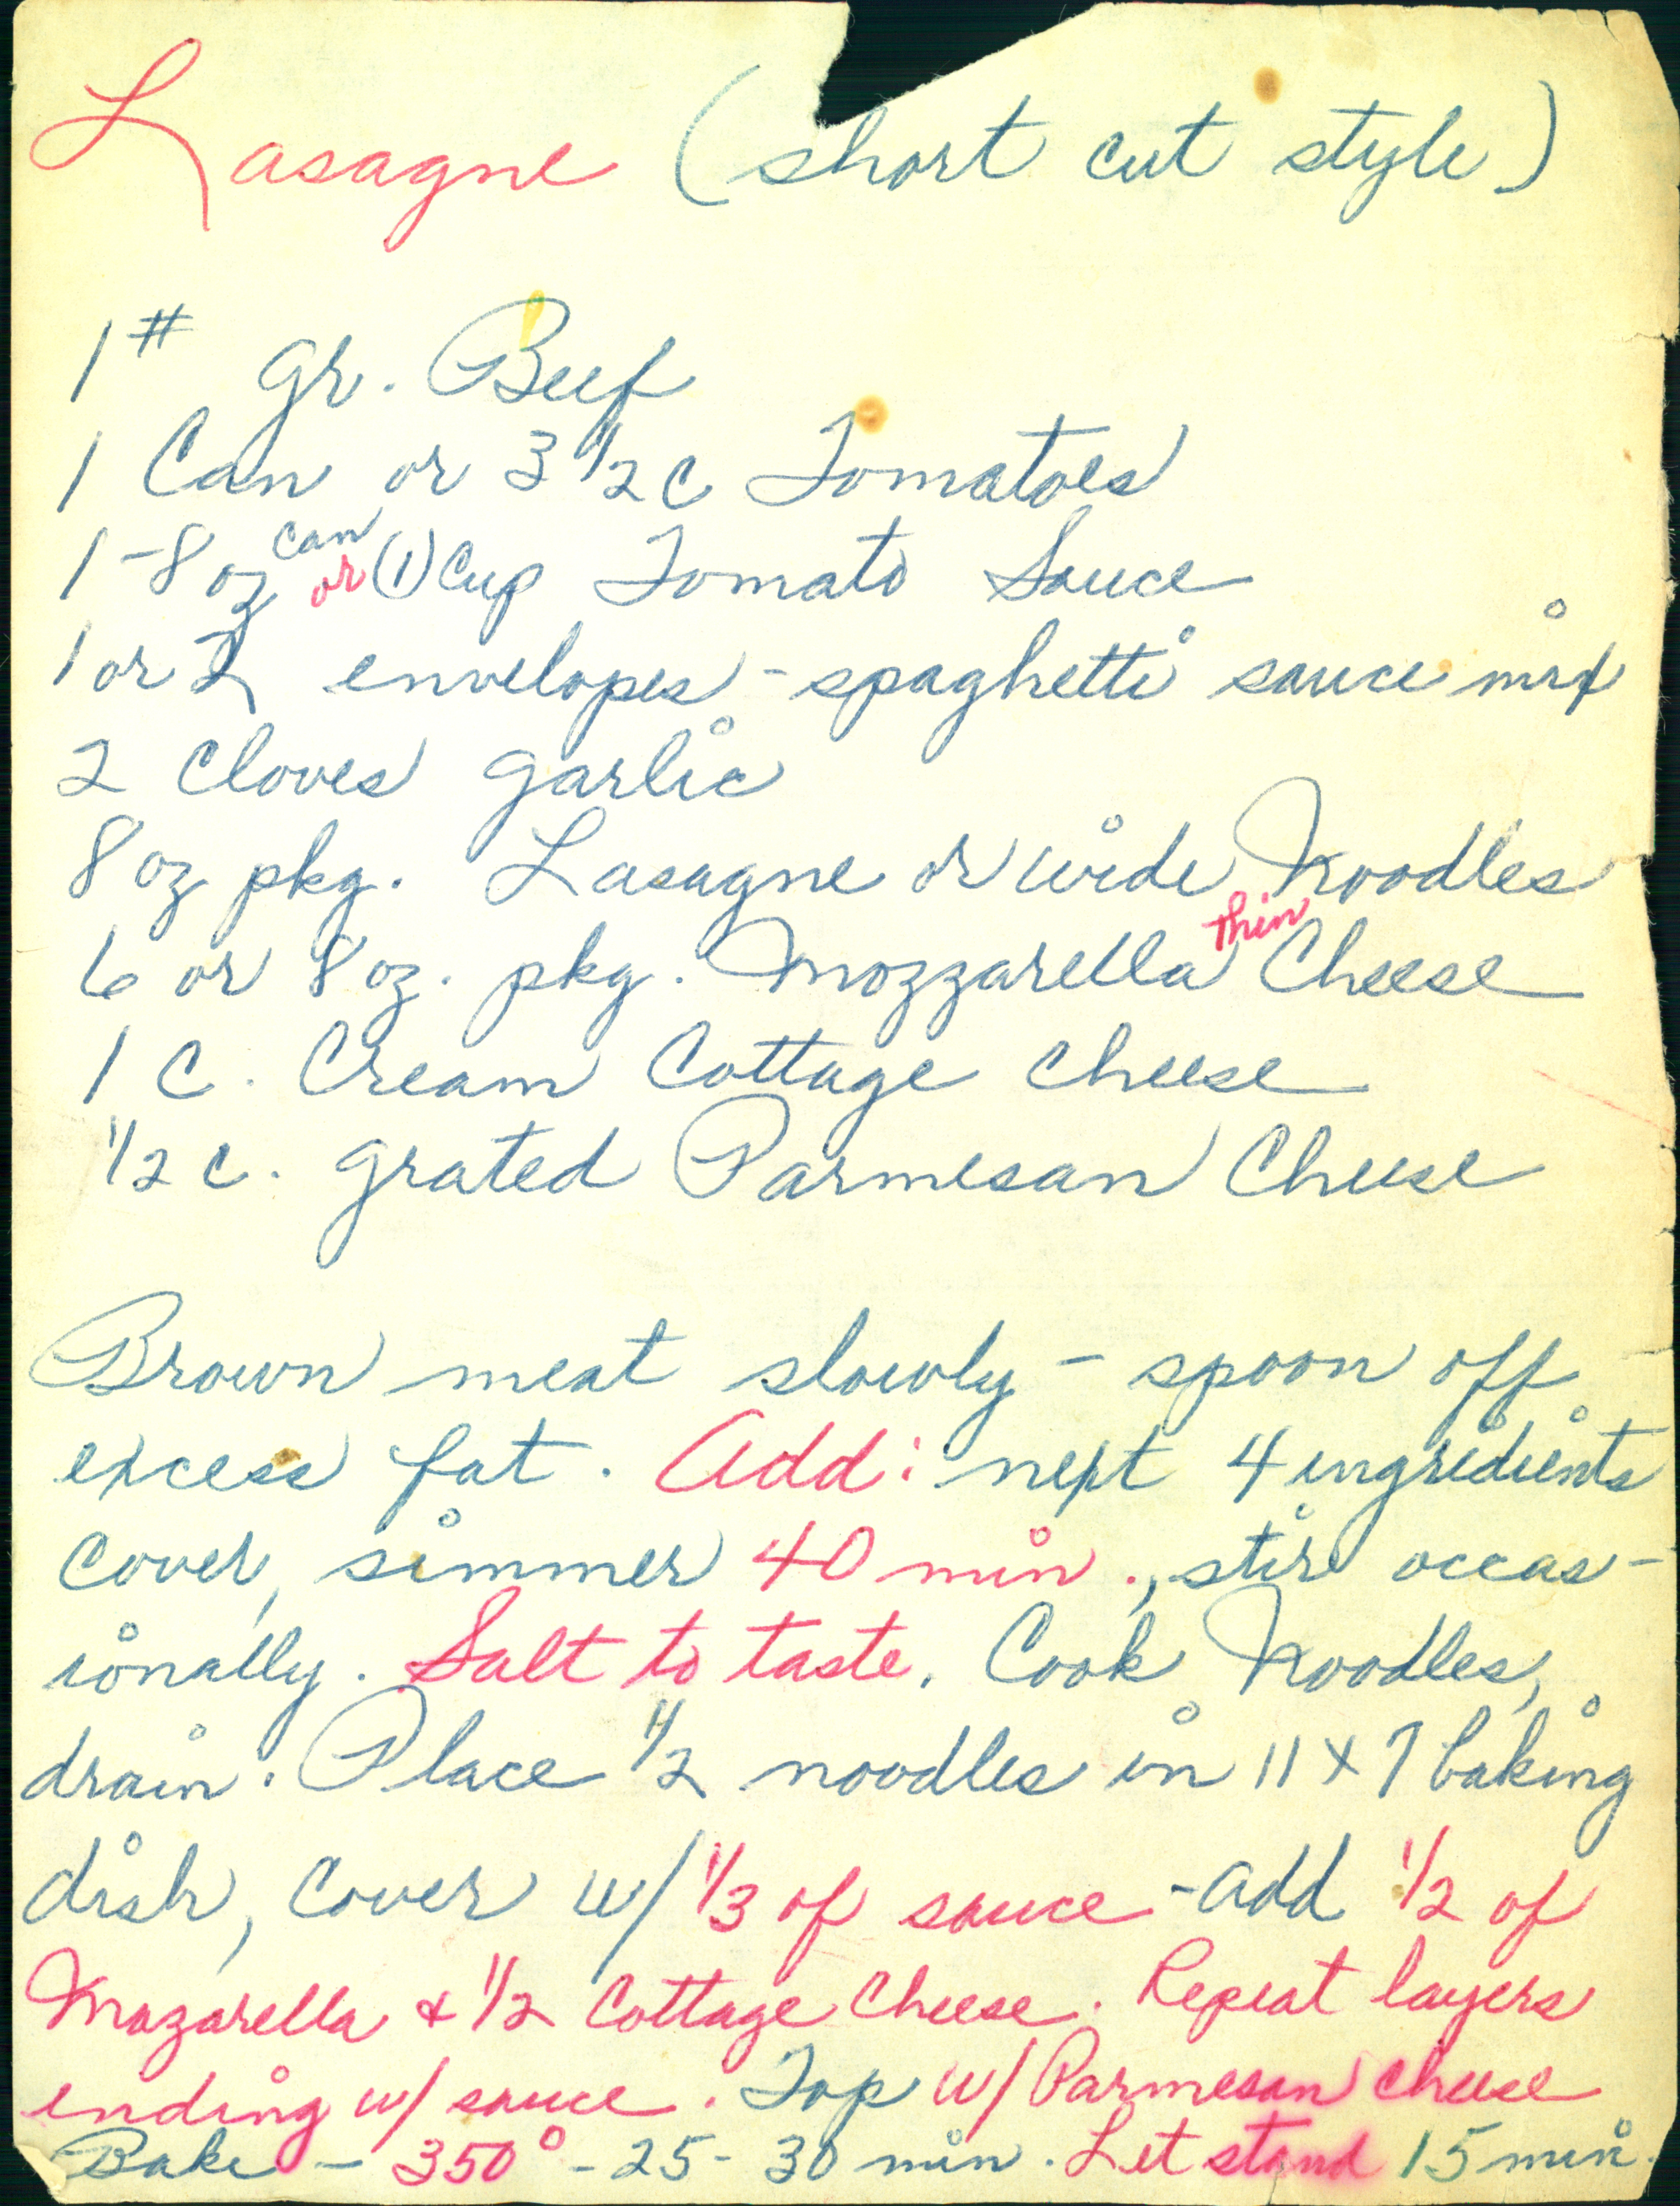 Lasagne (short cut style)
1# gr. Beef
1 Can or 3 1/2 c Tomatoes
1-8 oz can or (1) Cup Tomato Sauce
1 or 2 envelopes - spaghetti sauce mix
2 Cloves garlic
8 oz pkg. Lasagne or wide Noodles
6 or 8 oz. pkg. Mozzarella thin Cheese
1 C. Cream Cottage cheese
1/2 c. grated Parmesan Cheese
Brown meat slowly - spoon off
excess fat. Add: next 4 ingredients
Cover, simmer 40 min., stir occas-
ionally. Salt to taste. Cook Noodles,
drain. Place 1/2 noodles in 11 x 7 baking
dish, Cover w/ 1/3 of sauce - add 1/2 of
Mozarella & 1/2 Cottage Cheese. Repeat layers
ending w/ sauce. Top w/ Parmesan cheese
Bake - 350° - 25 - 30 min. Let stand 15 min.